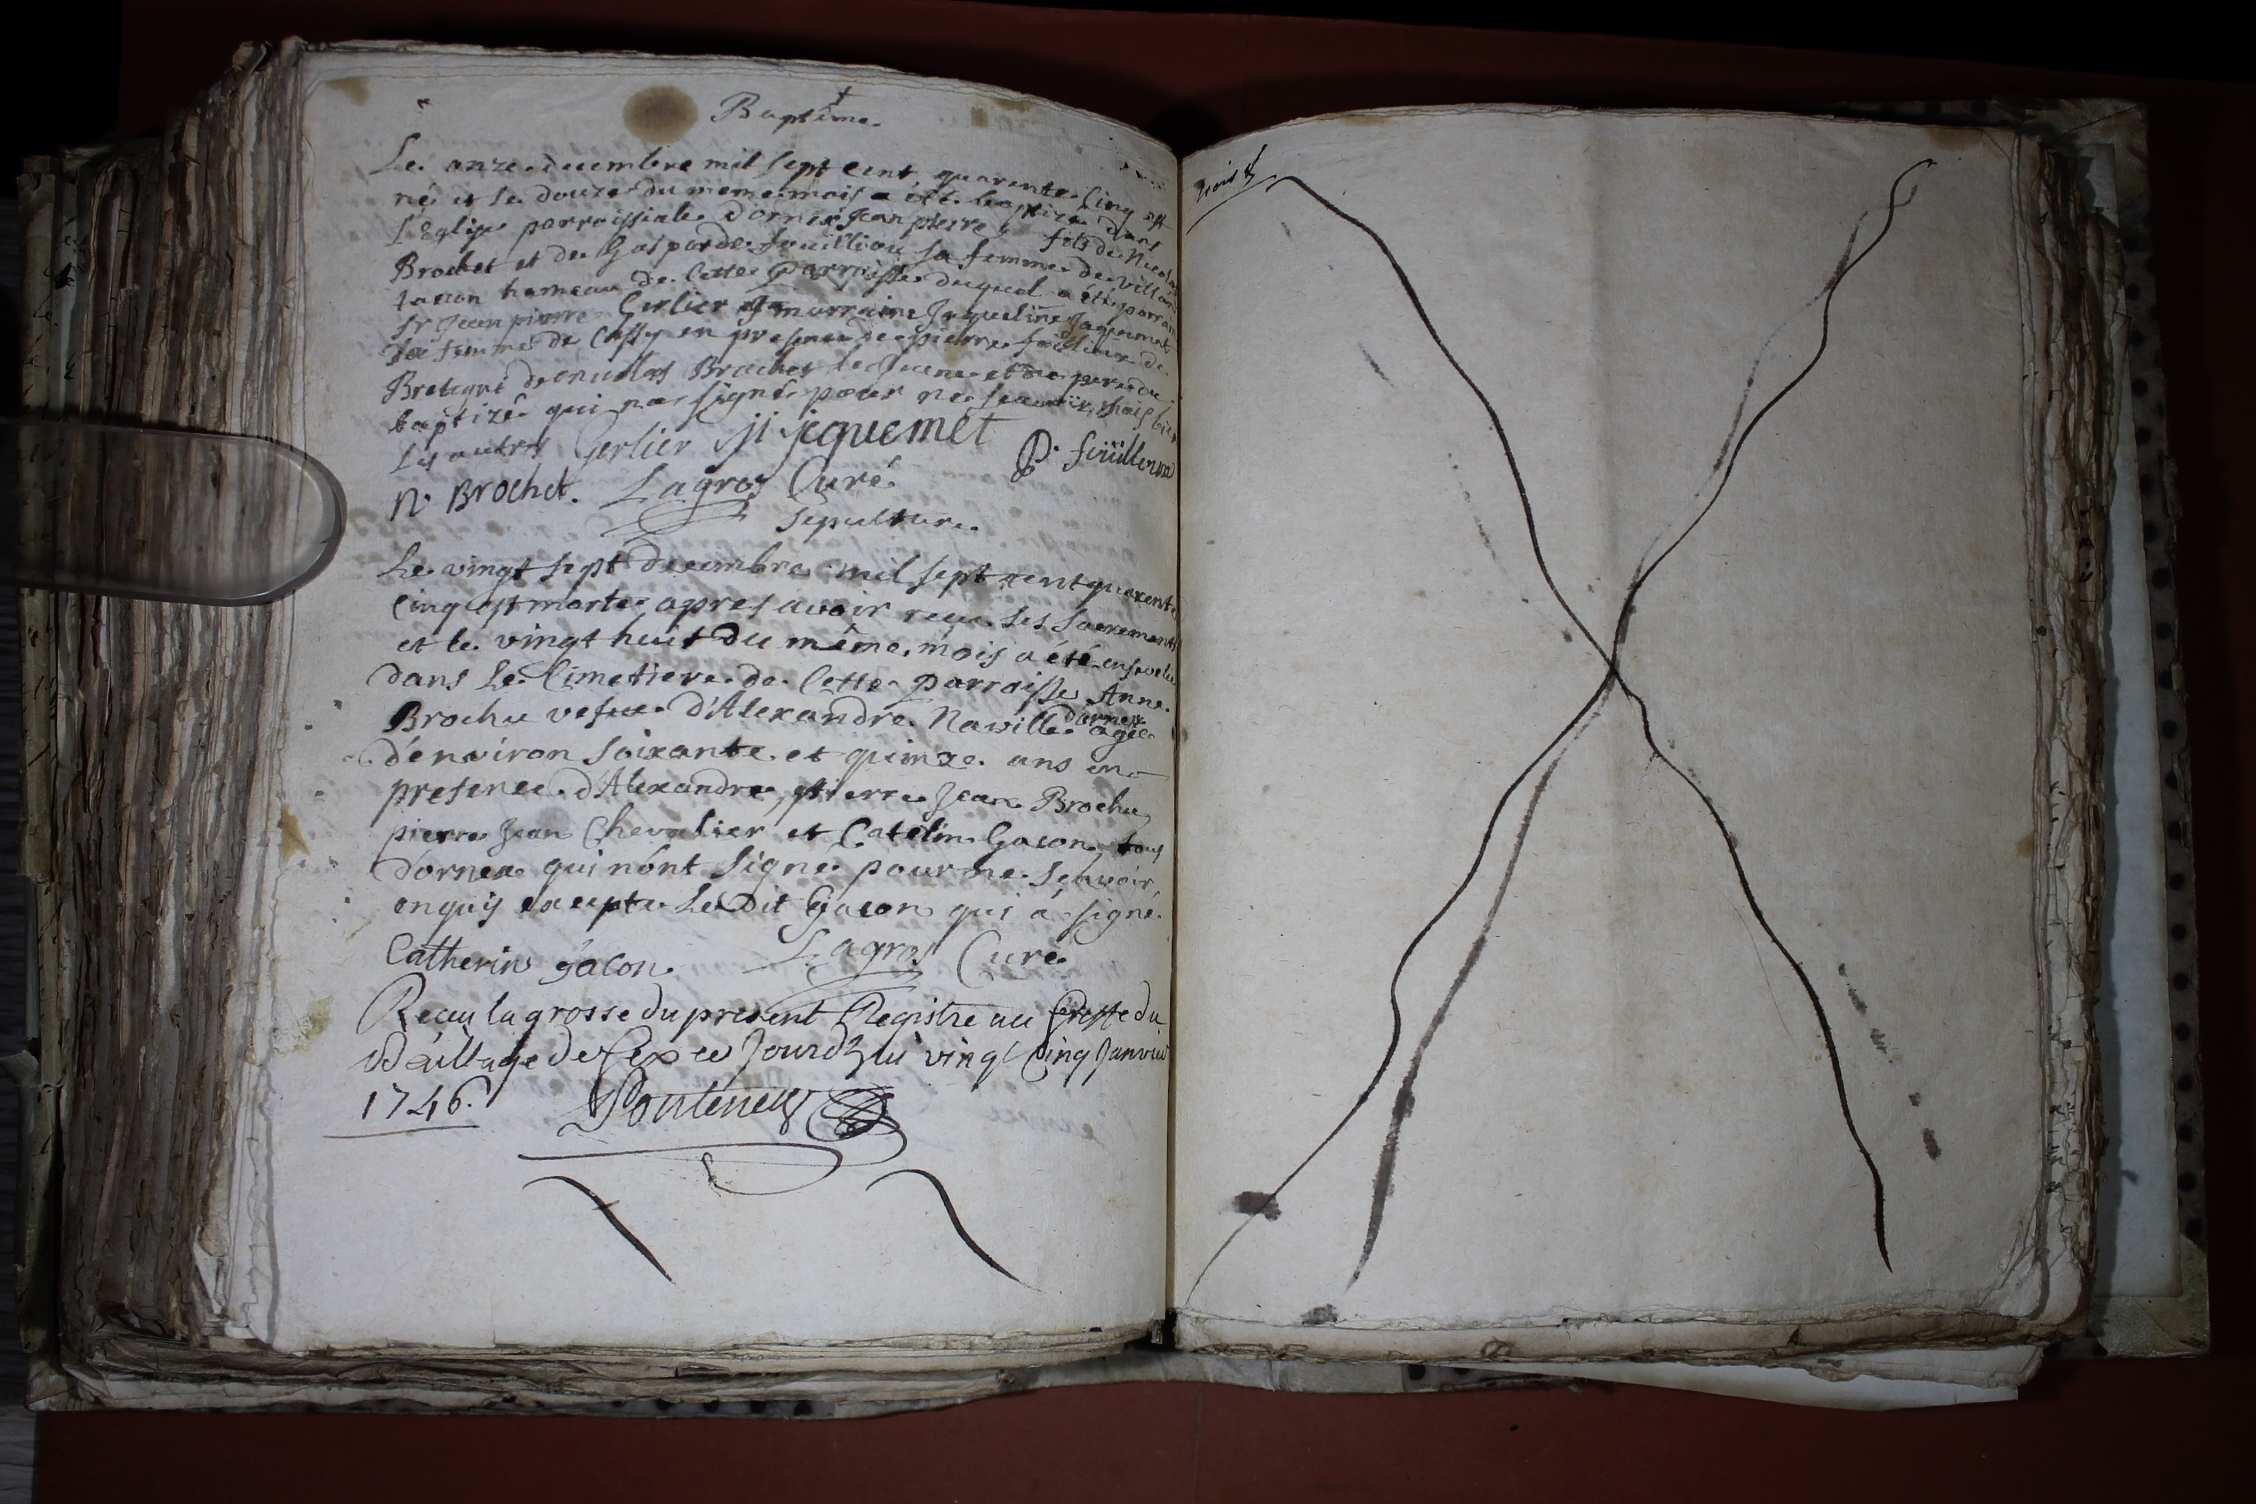 Baptême.
Le onze decembre mil sept cent quarente Cinq est
né et le douze du meme mois a été baptizé dans
l'Eglise parroissiale d'ornex Jean pierre fils de Nicolas
Brochet et de Gasparde fouilliou sa femme de villard
tacon hameau de Cette parroisse duquel a été parrain
sr Jean pierre Gerlier et marraine Jaqueline Jaquemet
sa femme de Cessy en presence de pierre de
Bretigni de nicolas Brochet le Jeune et du pere du
baptizé qui n'a signé pour ne scavoir, mais bien
Les autres Gerlier ji jequemet
P. foüillioux
N. Brochet. Lagros Curé.
Sepulture.
Le vingt sept decembre mil sept cent quarente
Cinq est morte apres avoir reçu les sacrements
et le vingt huit du même mois a été ensevelie
dans Le Cimetiere de Cette parroisse Anne
Brochu vefue d'Alexandre Naville d'ornex agée
d'environ soixante et quinze ans en
presence d'Alexandre, pierre Jean Brochu,
pierre Jean Chevalier et Catelin Gacon tous
dornex qui n'ont signé pour ne sçavoir,
enquis excepté Le dit Gacon qui a signé.
Catherin gâcon. Lagros Curé
Recu la grosse du present Registre au Greffe du
Bailliage de Gex ce Jourdhui vingt Cinq Janvier
1746.